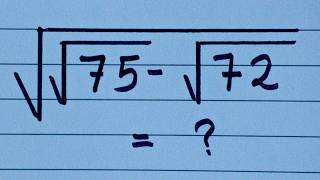 √(√75 - √72)
= ?